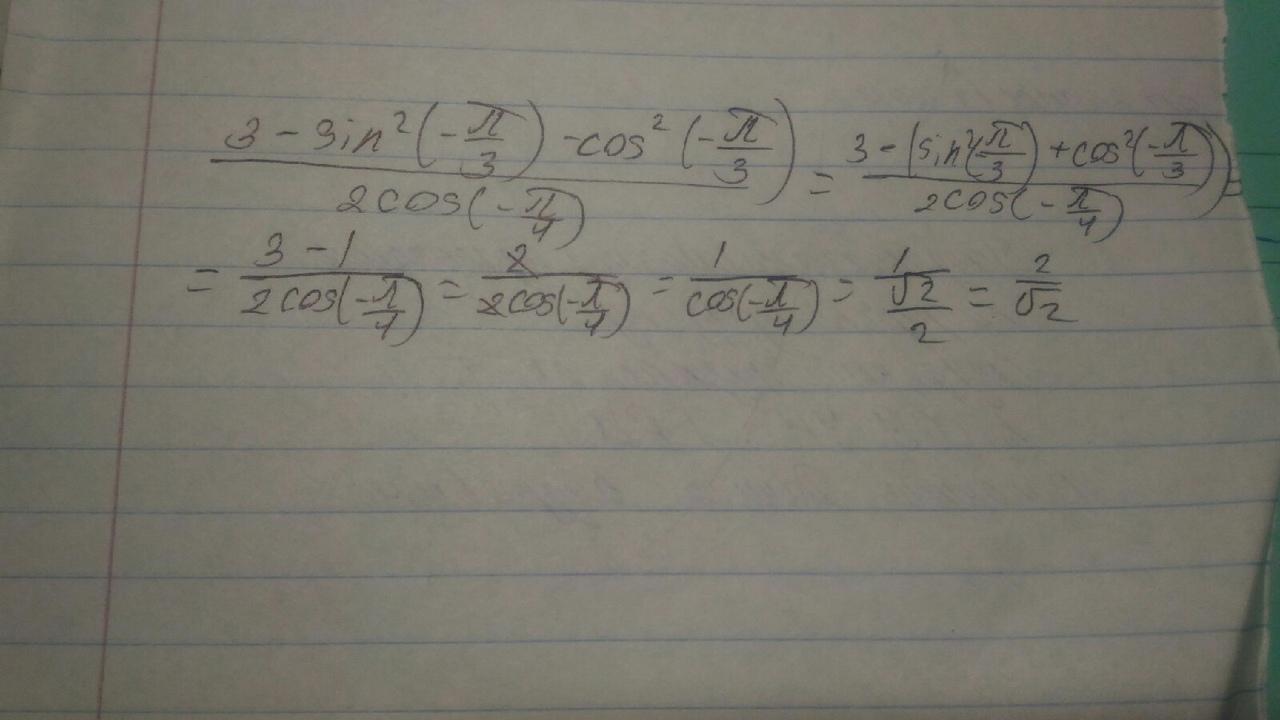 (3 - sin²(-π/3) - cos²(-π/3))/(2cos(-π/4)) = (3 - (sin²(π/3) + cos²(-π/3)))/(2cos(-π/4)) =
= (3 - 1)/(2cos(-π/4)) = 2/(2cos(-π/4)) = 1/(cos(-π/4)) = 1/(√2/2) = 2/√2